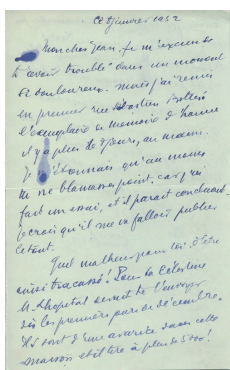 Ce 8 janvier 1952
Mon cher Jean. Je m'excuse de
t'avoir troublé dans un moment
si douloureux. mais j'ai remis
en premier rue Sébastien Bottin
l'exemplaire
il y a plus de 8 jours, au moins.
Je m'étonnais qu'au moins
tu ne blamares point. car j'en
fait un essai, et il parait concluant.
je crois qu'il me falloit publier
le tout.
Quel malheur pour toi d'être
aussi tracassé! Pour la Célestine
M. Lhopital devait te l'envoyer
dès les premiers jours de décembre.
Ils sont d'une avarice dans cette
maison et il tire à plus de 5000!